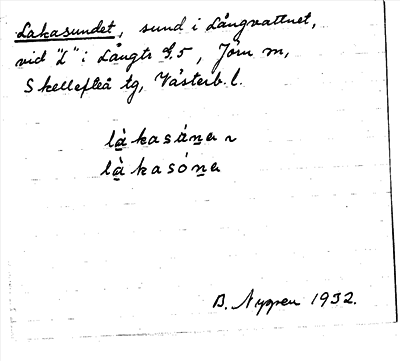 Lakasundet, sund i Långvattnet,
vid "L" i Långtr 9,5, Jörn sn,
Skellefteå tg, Västerb. l.
làkasúna ~
làkasóna
B. Nygren 1932.